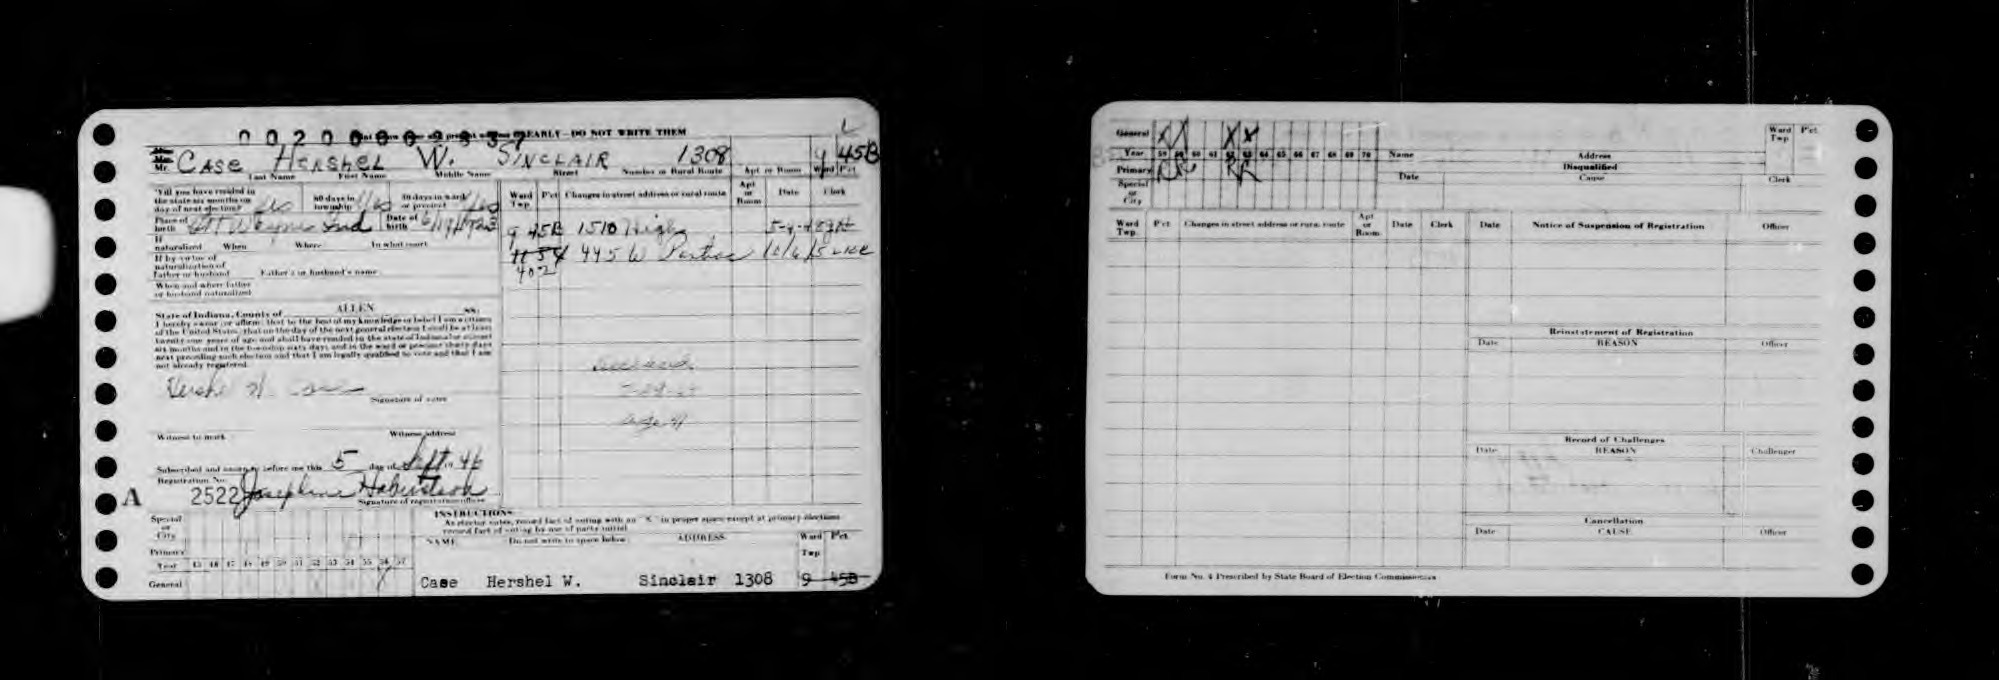 0020000237
CLEARLY - DO NOT WRITE THEM
Mr. CASE HERSHEL W. SINCLAIR 1308 9 45B
Last Name First Name Middle Name Street Number or Rural Route Apt or Room Ward P'ct
Will you have resided in the state six months on day of next election? Yes 60 days in township Yes 30 days in ward or precinct Yes
Place of birth Ft Wayne Ind Date of birth
If naturalized When Where In what court
If by virtue of naturalization of Father or husband Father's or husband's name
When and where father or husband naturalized
State of Indiana, County of ALLEN SS:
I hereby swear (or affirm) that to the best of my knowledge or belief I am a citizen
of the United States, that on the day of the next general election I shall be at least
twenty-one years of age and shall have resided in the state of Indiana for at least
six months and in the township sixty days and in the ward or precinct thirty days
next preceding such election and that I am legally qualified to vote and that I am
not already registered.
Signature of voter
Witness to mark Witness address
Subscribed and sworn to before me this 5 day of Sept 19 46
Registration No. 2522 Josephine
Signature of registration officer
A
Ward Twp. P'ct Changes in street address or rural route Apt or Room Date Clerk
9 45B 1510 High
11 54 445 W
402
Deceased
INSTRUCTIONS
As elector votes, record fact of voting with an "X" in proper space except at primary elections
record fact of voting by use of party initial.
NAME Do not write in space below ADDRESS Ward Twp. Pct.
Case Hershel W. Sinclair 1308 9 45B
Special or City
Primary
Year 45 46 47 48 49 50 51 52 53 54 55 56 57
General X
General X X X X
Year 58 59 60 61 62 63 64 65 66 67 68 69 70
Primary R R R R
Special or City
Name Address Ward Twp P'ct.
Disqualified
Date Cause Clerk
Ward Twp. P'ct Changes in street address or rural route Apt or Room Date Clerk
Date Notice of Suspension of Registration Officer
Reinstatement of Registration
Date REASON Officer
Record of Challenges
Date REASON Challenger
Cancellation
Date CAUSE Officer
Form No. 4 Prescribed by State Board of Election Commissioners